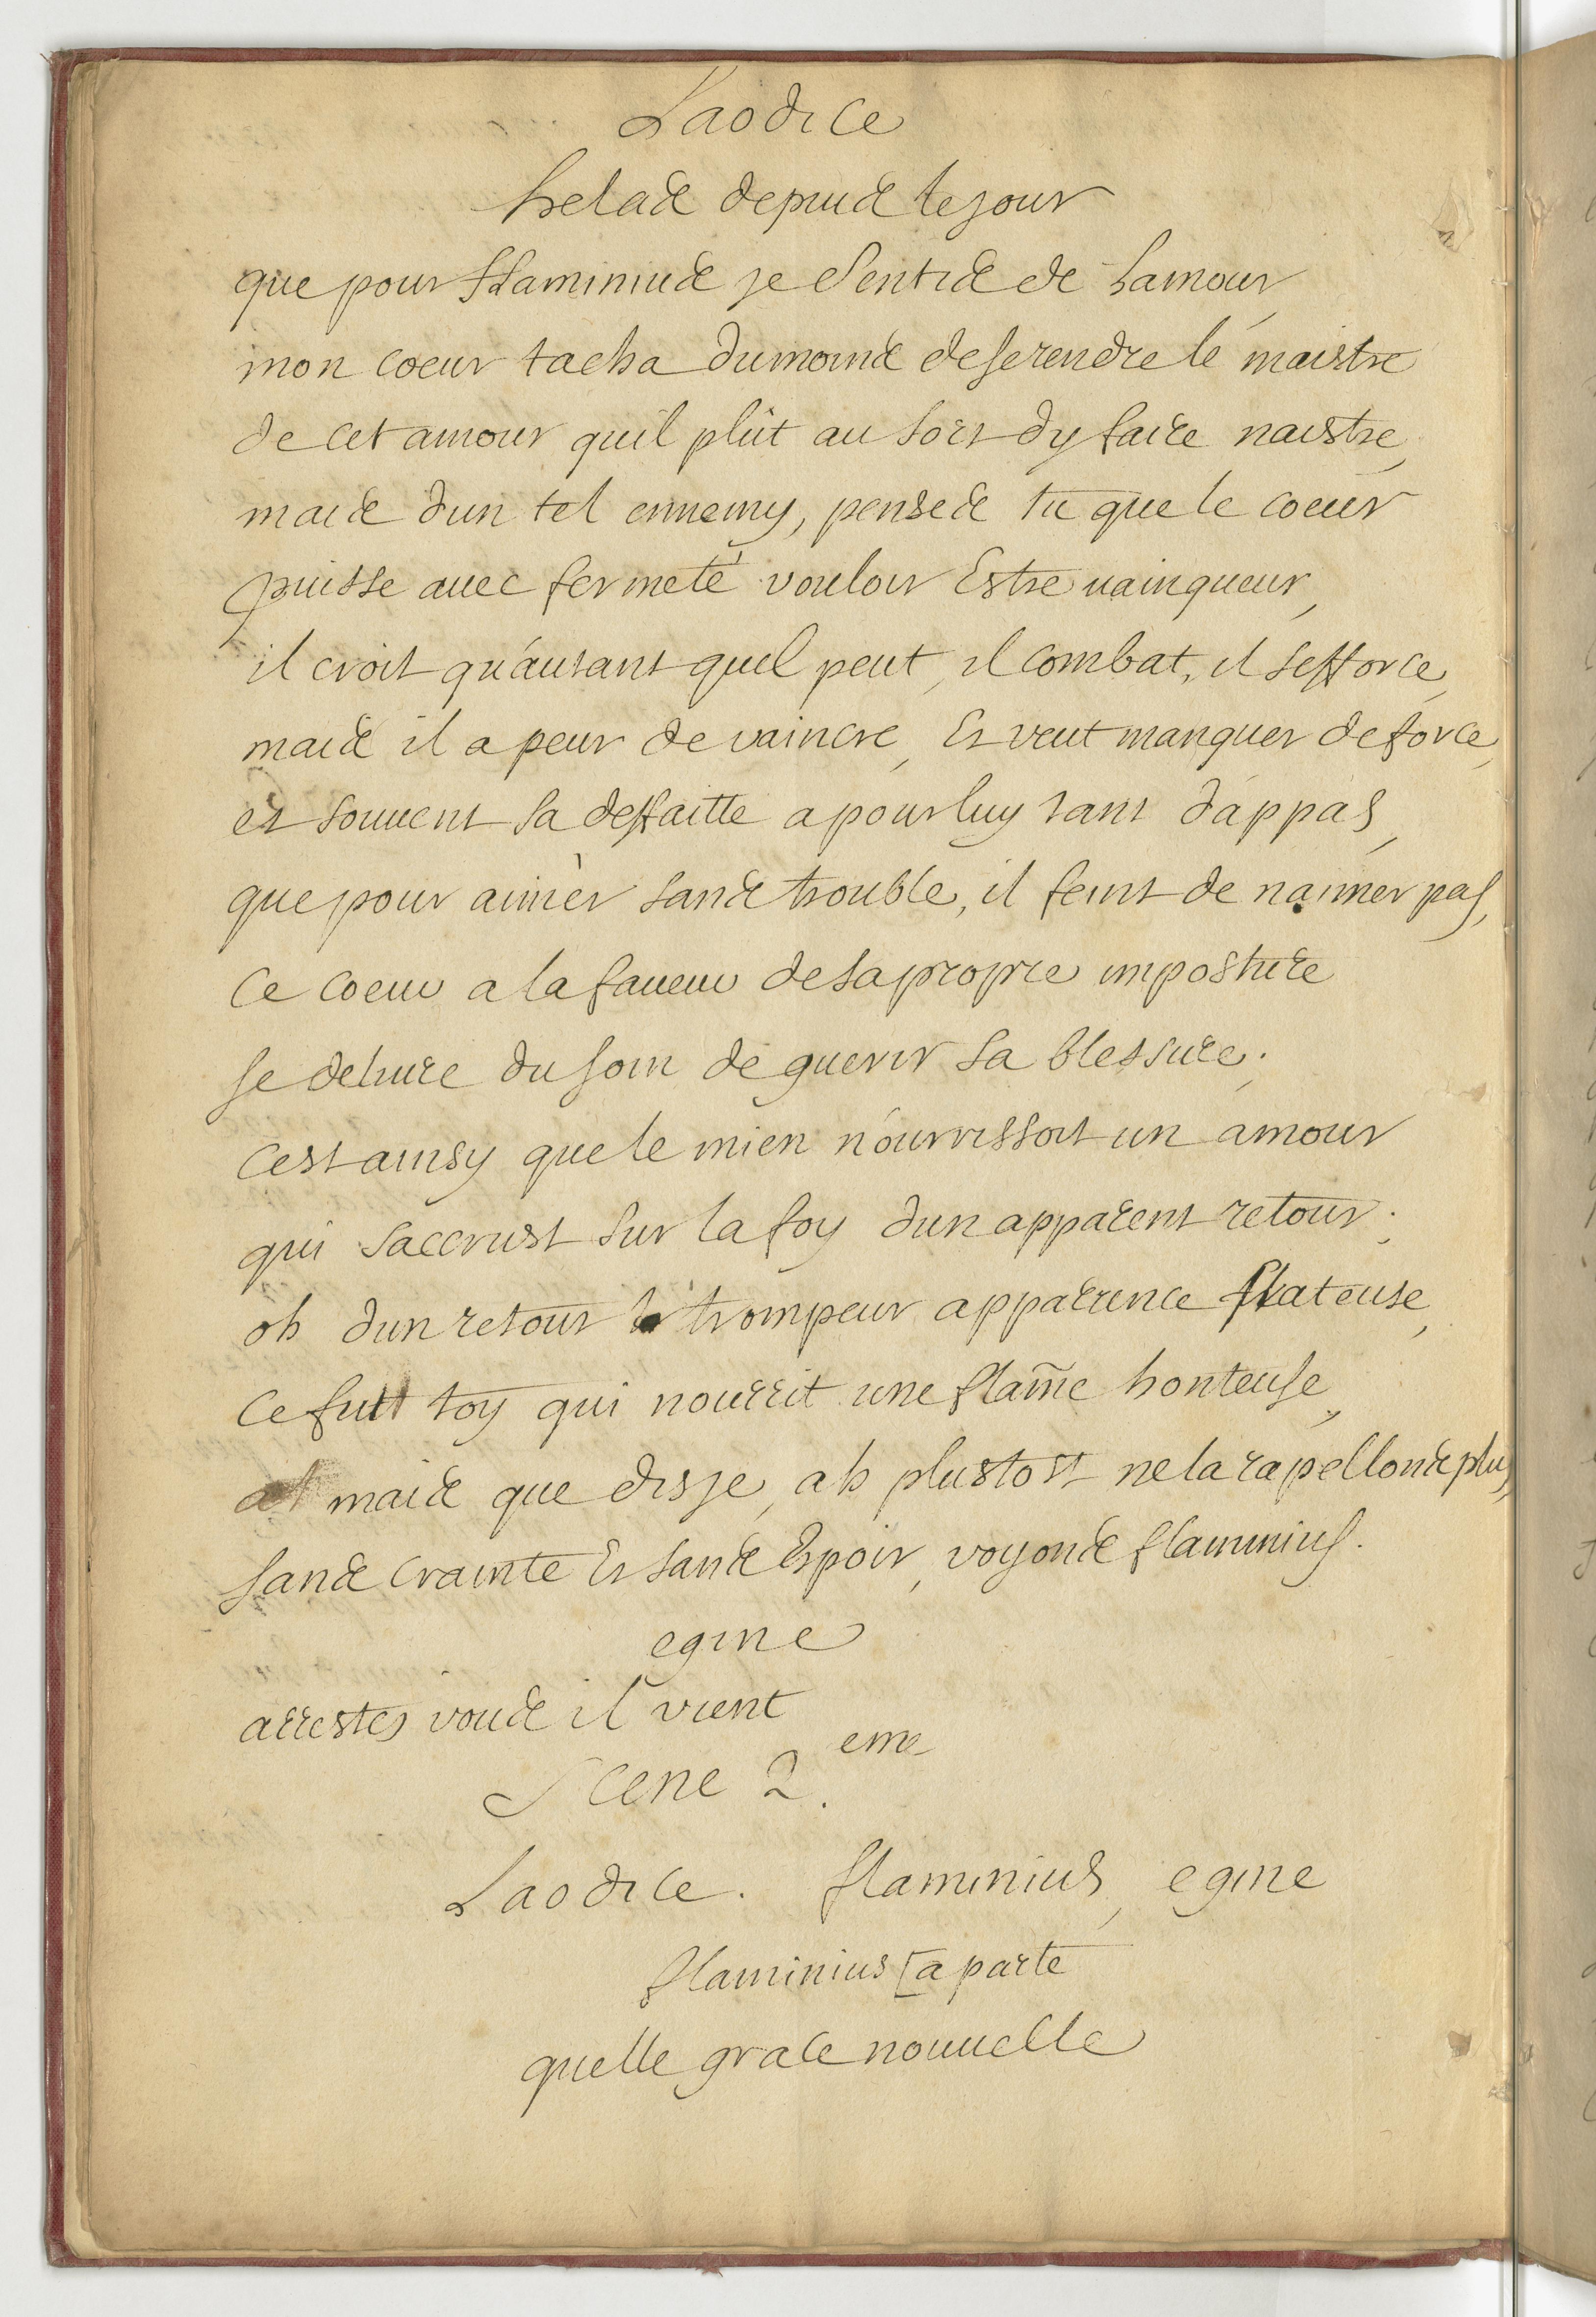 Laodice
helas depuis le jour
que pour flaminius je sentis de lamour,
mon coeur tacha dumoins de se rendre le maistre
de cet amour quil plût au sort dy faire naistre,
mais dun tel ennemy, penses tu que le coeur
puisse auec fermeté vouloir Estre uainqueur,
il croit qu'autant quil peut, il combat, il sefforce,
mais il a peur de vaincre, Et veut manquer de force,
et souuent sa deffaitte a pour luy tant dappas,
que pour aimer sans trouble, il feint de naimer pas,
ce coeur a la faueur de sa propre imposture
se deliure du soin de guerir sa blessure;
cest ainsy que le mien nourrissoit un amour
qui saccrust sur la foy dun apparent retour;
oh dun retour trompeur apparence flateuse,
ce fut toy qui nourrit une flam̃e honteuse,
mais que disje, ah plustost ne la rapellons plus,
sans crainte Et sans Espoir, voyons flaminius.
egine
arrestes vous il vient
Scene 2.eme
Laodice. flaminius, egine
flaminius [a parte
quelle grace nouuelle